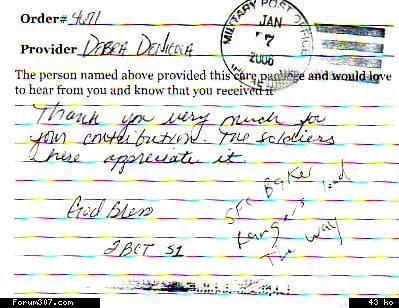 Order# 4071
MILITARY POST OFFICE
JAN
7
2006
Provider DEBRA DENICOLA
The person named above provided this care package and would love
to hear from you and know that you received it
Thank you very much for
your contribution. The soldiers
here appreciate it.
God Bless
2BCT S1
SFC Baker
Rangers lead
The way
Forum307.com
43 ko